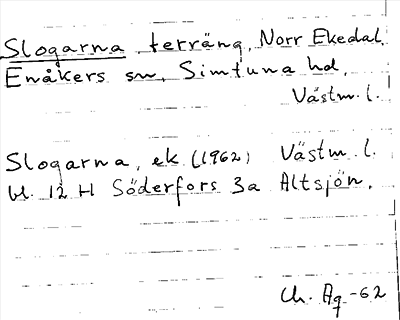 Slogarna, terräng, Norr Ekedal,
Enåkers sn, Simtuna hd,
Västm. l.
Slogarna, ek. (1962) Västm. l.
bl. 12 H Söderfors 3a Altsjön.
Ch. Ag -62